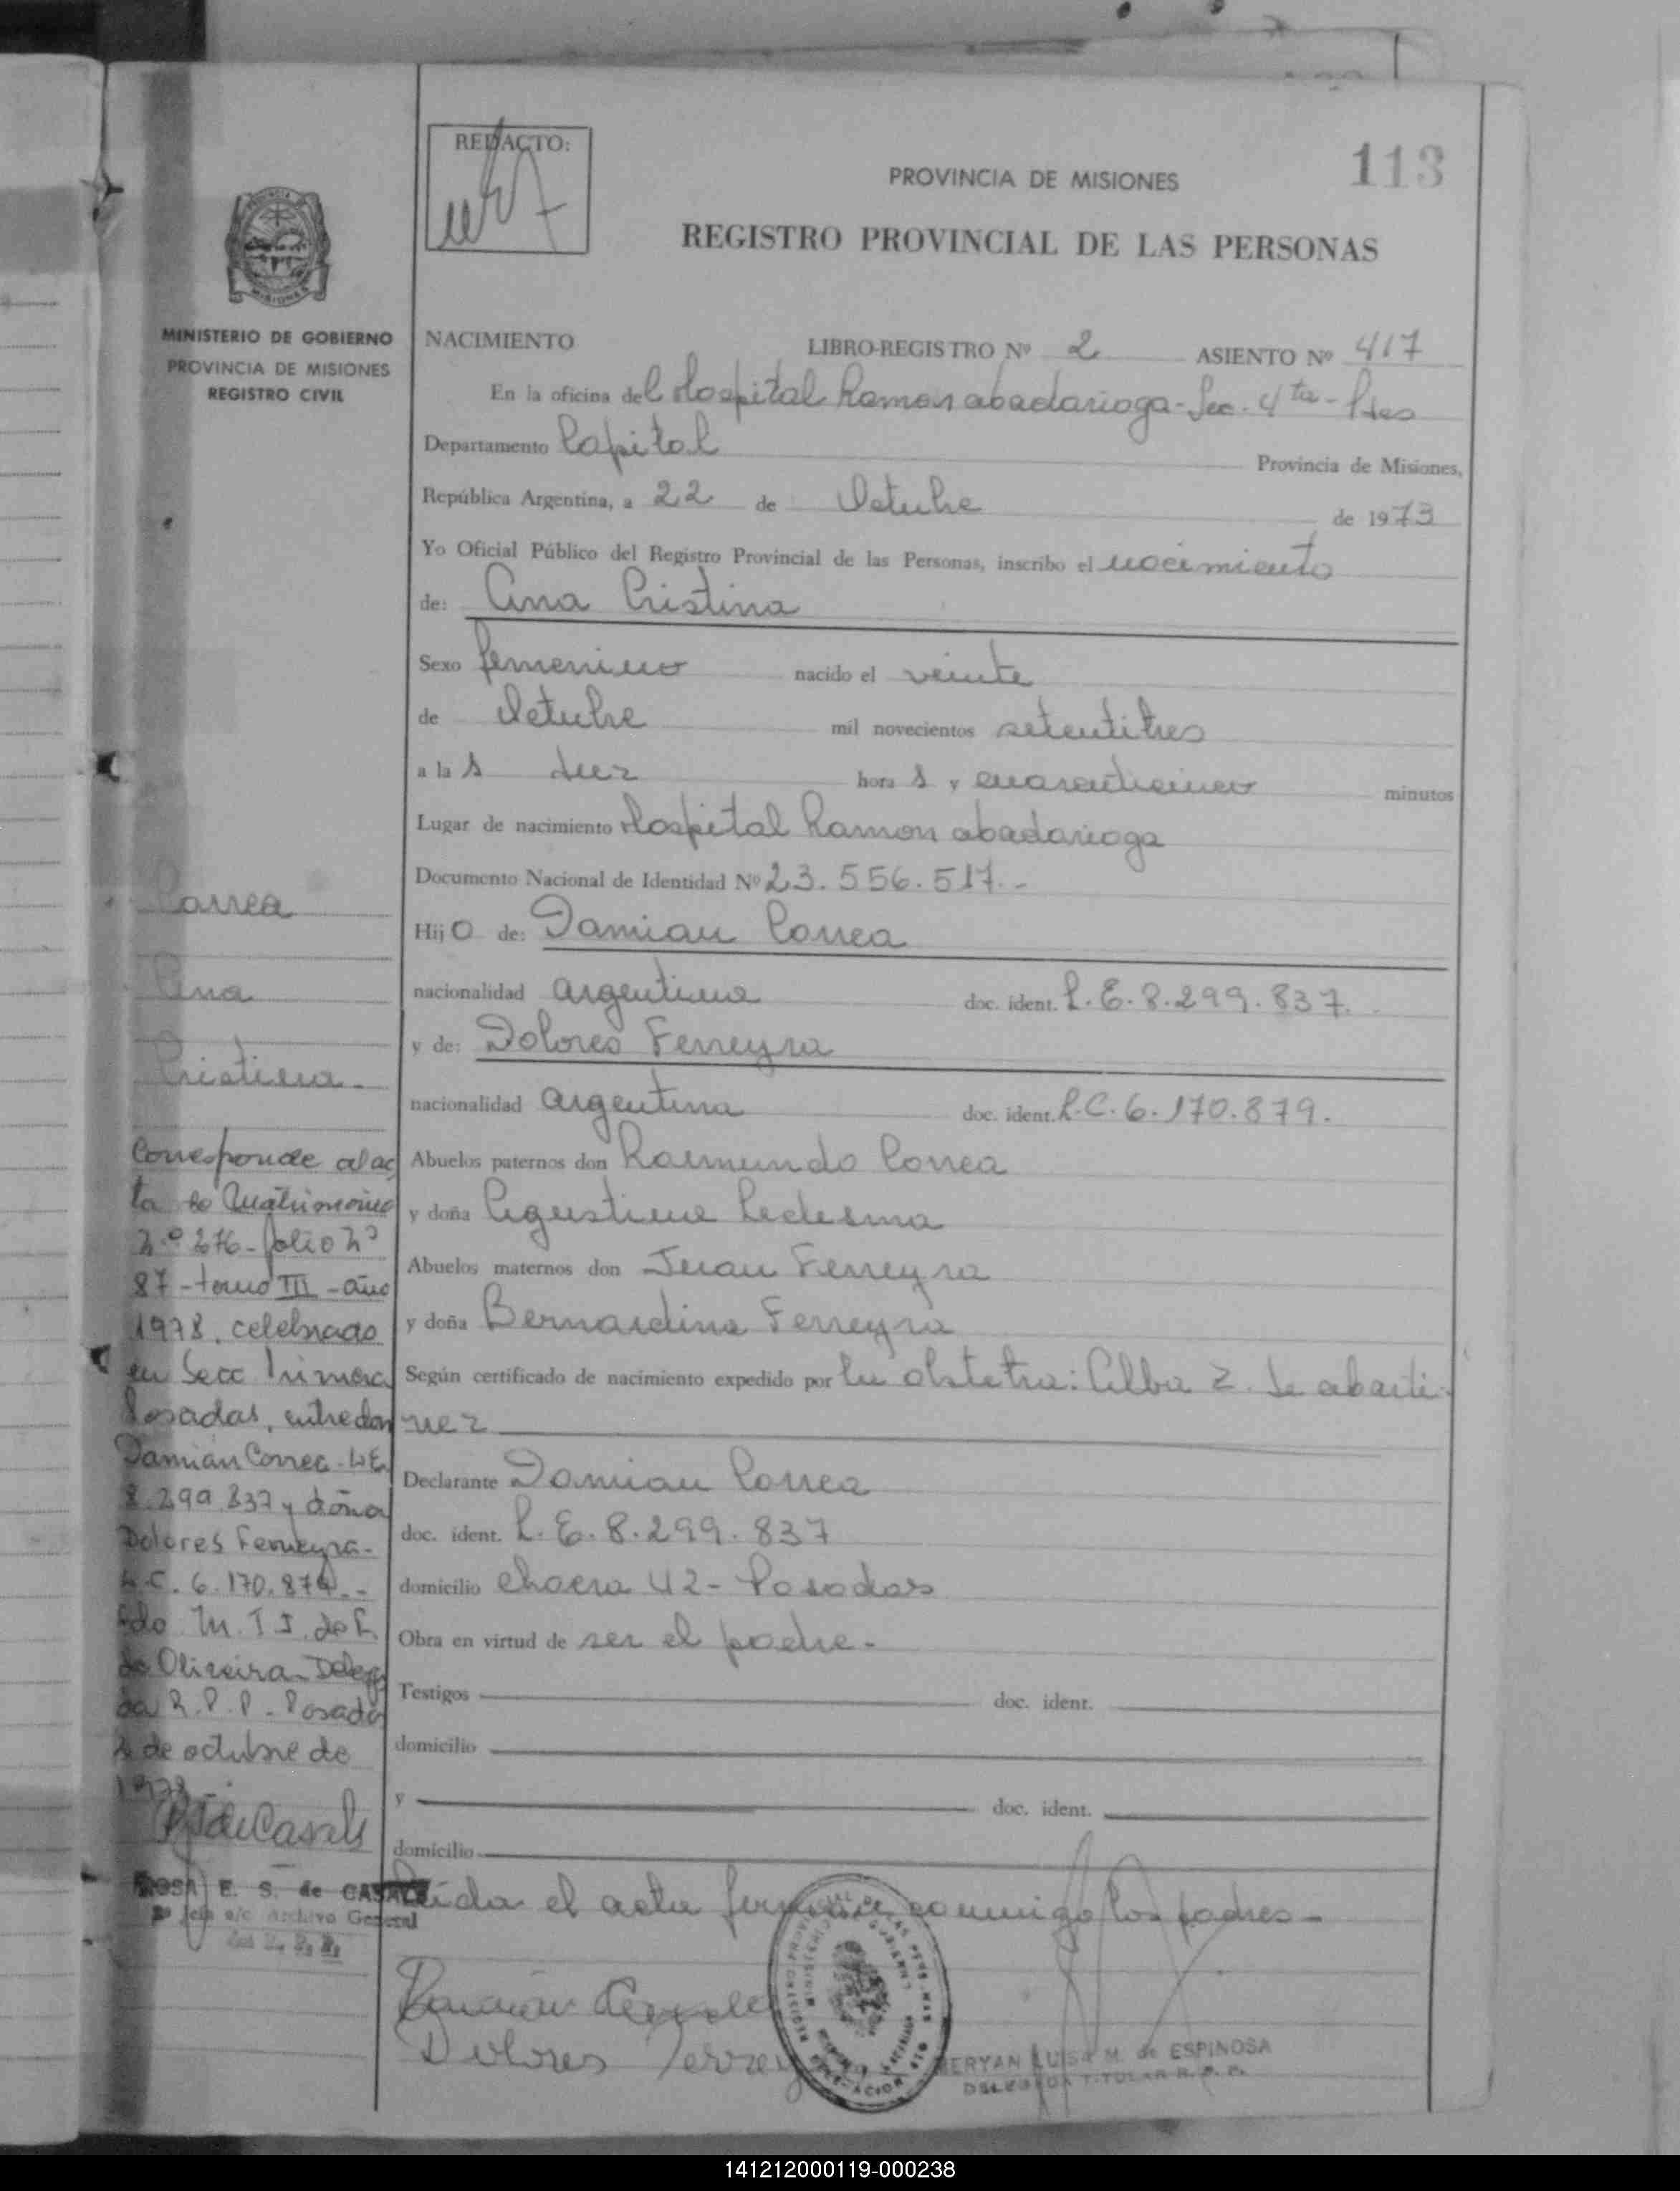 113
REDACTO:
PROVINCIA DE MISIONES
REGISTRO PROVINCIAL DE LAS PERSONAS
MINISTERIO DE GOBIERNO
PROVINCIA DE MISIONES
REGISTRO CIVIL
NACIMIENTO LIBRO-REGISTRO Nº 2 ASIENTO Nº 417
En la oficina del Hospital Ramon abadarioga - Sec. 4ta - Pdas
Departamento Capital Provincia de Misiones,
República Argentina, a 22 de Octubre de 1973
Yo Oficial Público del Registro Provincial de las Personas, inscribo el nacimiento
de: Ana Cristina
Sexo femenino nacido el veinte
de Octubre mil novecientos setentitres
a la s diez hora s y cuarenticinco minutos
Lugar de nacimiento Hospital Ramon abadarioga
Documento Nacional de Identidad Nº 23.556.517.-
Hij a de: Damian Correa
nacionalidad argentina doc. ident. L.E. 8.299.837.
y de: Dolores Ferreyra
nacionalidad argentina doc. ident. L.C. 6.170.879.
Abuelos paternos don Raimundo Correa
y doña Agustina Ledesma
Abuelos maternos don Juan Ferreyra
y doña Bernardina Ferreyra
Según certificado de nacimiento expedido por la obstetra: Alba Z. de
nez
Declarante Damian Correa
doc. ident. L.E. 8.299.837
domicilio chacra 42 - Posadas
Obra en virtud de ser el padre.-
Testigos doc. ident.
domicilio
y doc. ident.
domicilio
Leida el acta firman conmigo los padres.-
Dolores Ferrey
MERYAN LUISA M. de ESPINOSA
DELEGADA TITULAR R. P. P.
Correa
Ana
Cristina.-
Corresponde al ac
ta de Matrimonio
Nº 276 - folio Nº
87 - tomo III - año
1978, celebrado
en Secc Primera
Posadas, entre don
Damián Correa - L.E.
8.299.837 y doña
Dolores Ferreyra-
L.C. 6.170.879.-
Fdo M. T. J. de F.
de Oliveira - Delega
da R.P.P. - Posadas
de octubre de
1978.-
R de Casals
ROSA E. S. de CASALS
Jefe a/c Archivo General
del R. P. P.
141212000119-000238